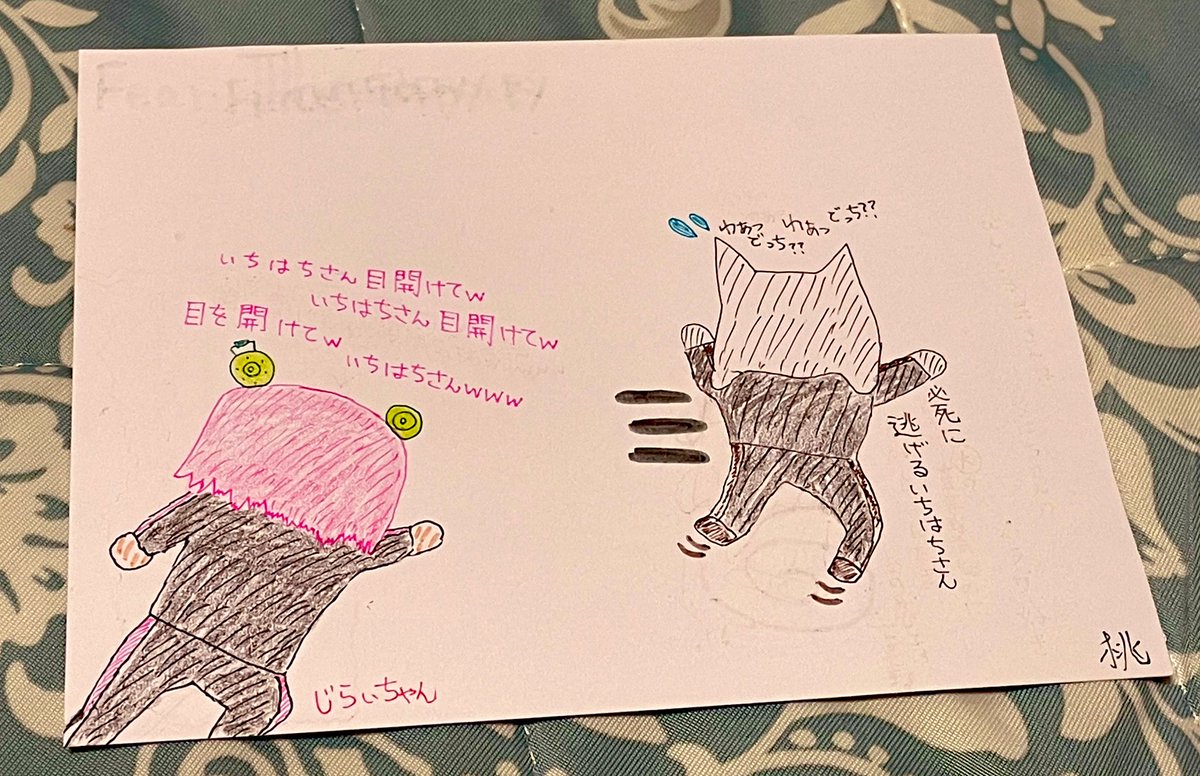 いちはちさん目開けてw
いちはちさん目開けてw
目を開けてw
いちはちさんwww
じらぃちゃん
わあっ
どっち??
わあっ
どっち??
必死に
逃げるいちはちさん
桃